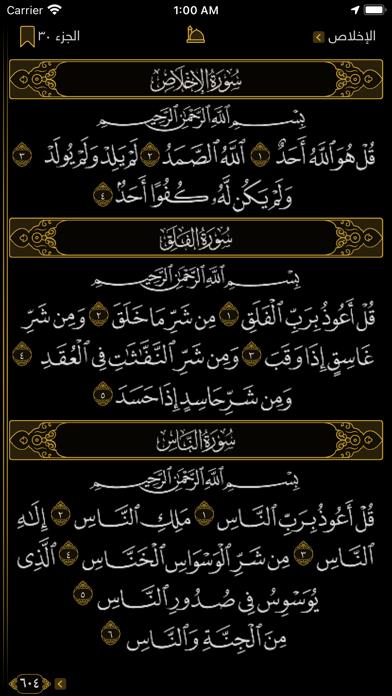 Carrier 1:00 AM
الإخلاص الجزء ٣٠
سُورَةُ الإِخْلَاصِ
بِسْمِ ٱللَّهِ ٱلرَّحْمَٰنِ ٱلرَّحِيمِ
قُلْ هُوَ ٱللَّهُ أَحَدٌ ١ ٱللَّهُ ٱلصَّمَدُ ٢ لَمْ يَلِدْ وَلَمْ يُولَدْ ٣
وَلَمْ يَكُن لَّهُۥ كُفُوًا أَحَدٌۢ ٤
سُورَةُ الفَلَقِ
بِسْمِ ٱللَّهِ ٱلرَّحْمَٰنِ ٱلرَّحِيمِ
قُلْ أَعُوذُ بِرَبِّ ٱلْفَلَقِ ١ مِن شَرِّ مَا خَلَقَ ٢ وَمِن شَرِّ
غَاسِقٍ إِذَا وَقَبَ ٣ وَمِن شَرِّ ٱلنَّفَّٰثَٰتِ فِى ٱلْعُقَدِ ٤
وَمِن شَرِّ حَاسِدٍ إِذَا حَسَدَ ٥
سُورَةُ النَّاسِ
بِسْمِ ٱللَّهِ ٱلرَّحْمَٰنِ ٱلرَّحِيمِ
قُلْ أَعُوذُ بِرَبِّ ٱلنَّاسِ ١ مَلِكِ ٱلنَّاسِ ٢ إِلَٰهِ
ٱلنَّاسِ ٣ مِن شَرِّ ٱلْوَسْوَاسِ ٱلْخَنَّاسِ ٤ ٱلَّذِى
يُوَسْوِسُ فِى صُدُورِ ٱلنَّاسِ ٥
مِنَ ٱلْجِنَّةِ وَٱلنَّاسِ ٦
٦٠٤